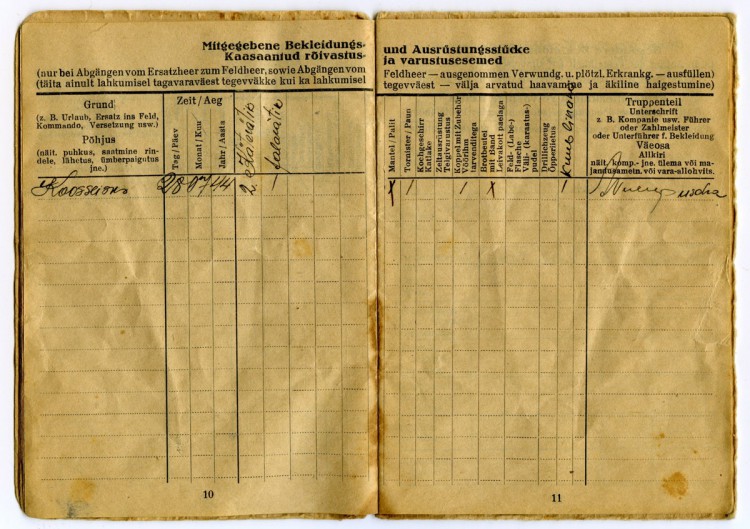 Mitgegebene Bekleidungs-
Kaasaantud rõivastus-
(nur bei Abgängen vom Ersatzheer zum Feldheer, sowie Abgängen vom
(täita ainult lahkumisel tagavaraväest tegevväkke kui ka lahkumisel
Grund
(z. B. Urlaub, Ersatz ins Feld,
Kommando, Versetzung usw.)
Põhjus
(näit. puhkus, saatmine rin-
dele, lähetus, ümberpaigutus
jne.)
Zeit / Aeg
Tag / Päev
Monat / Kuu
Jahr / Aasta
28 07 44
10
und Ausrüstungsstücke
ja varustusesemed
Feldheer — ausgenommen Verwundg. u. plötzl. Erkrankg. — ausfüllen)
tegevväest — välja arvatud haavamine ja äkiline haigestumine)
Mantel / Palit
Tornister / Paun
Kochgeschirr
Katlake
Zeltausrüstung
Telgivarustus
Koppel mit Zubehör
Vöörihm
tarvenditega
Brotbeutel
mit Band
Leivakott paelaga
Feld- (Labe-)
Flasche
Väli- (karastus-)
pudel
Drillichzeug
Õpperiietus
Truppenteil
Unterschrift
z. B. Kompanie usw. Führer
oder Zahlmeister
oder Unterführer f. Bekleidung
Väeosa
Allkiri
näit. komp.- jne. ülema või ma-
jandusametn. või vara-allohvits.
x 1 1 x 1
11